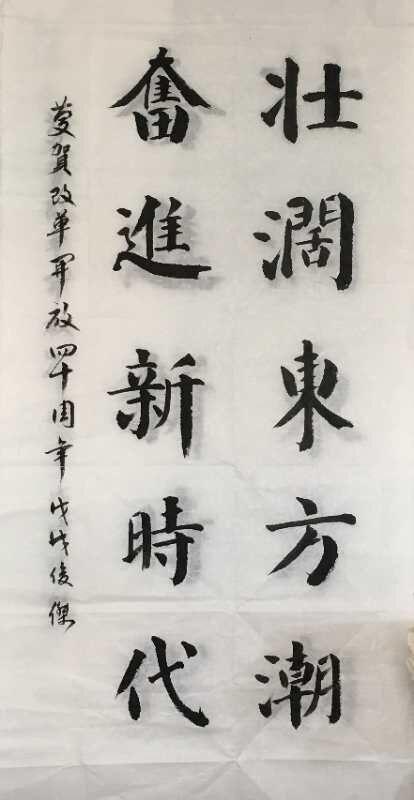 壮濶東方潮
奮進新時代
慶賀改革開放四十周年戊戌俊傑